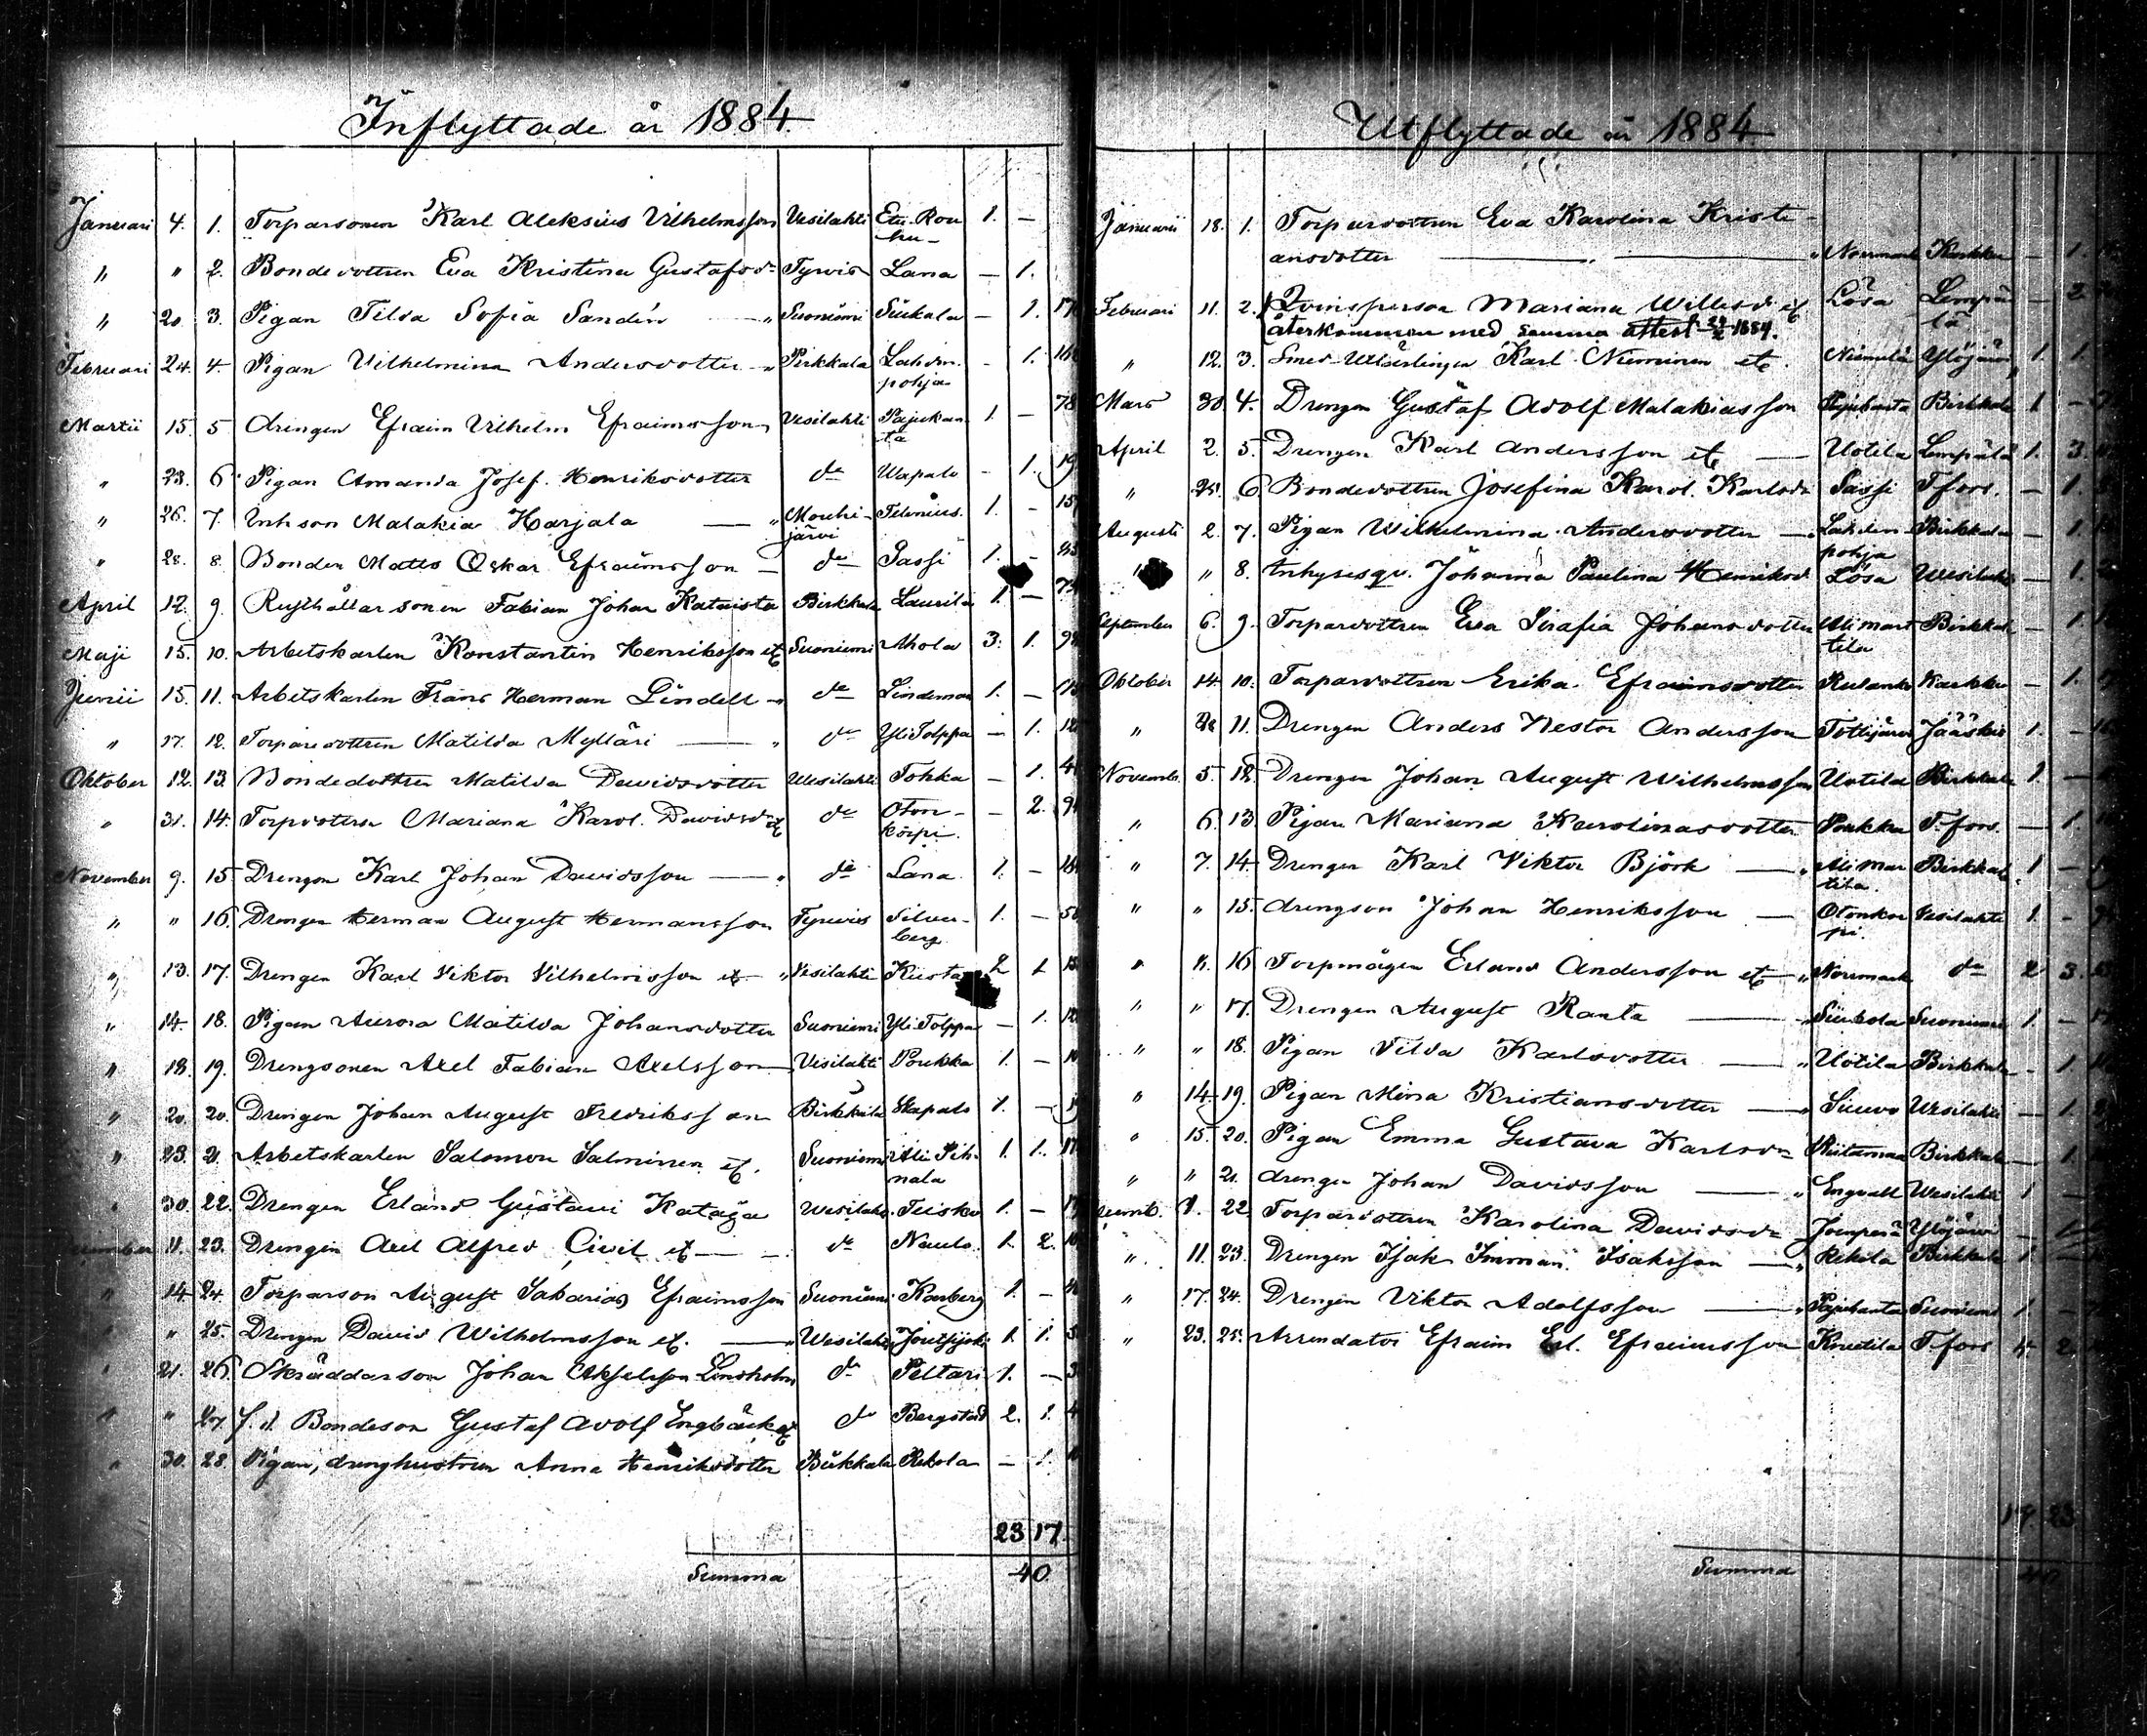 Inflyttade år 1884.
Januari 4. 1. Torparsonen Karl Aleksius Vilhelmsson Vesilahti Etu-Rou 1. —
hu-
" " 2. Bondedottren Eva Kristina Gustafsdr Tyrvis Lana — 1.
" 20. 3. Pigan Tilda Sofia Sandén " Suoniemi Siukala — 1. 17
Februari 24. 4. Pigan Vilhelmina Andersdotter " Pirkkala Lahden - 1.
pohja
Martii 15. 5 drengen Efraim Vilhelm Efraimsson Vesilahti Pajukan 1. — 78
ta
" 23. 6. Pigan Amanda Josef. Henriksdotter do Wapalo - 1. 19
" 26. 7. Inh son Malakia Harjala — " Mouhi- 1. - 15
järvi
" 28. 8. Bonden Matts Oskar Efraimsson — do Sassi 1. -
April 12. 9. Rusthållarsonen Fabian Johan Birkkala Laurila 1. — 73
Maji 15. 10. Arbetskarlen Konstantin Henriksson et Suoniemi Ahola 3. 1. 98
Junii 15. 11. Arbetskarlen Frans Herman Lindell " do Lindeman 1. —
" 17. 12. Torparedottren Matilda Mylläri — " do Yli Tolppa — 1. 12
Oktober 12. 13. Bondedottren Matilda Davidsdotter Wesilahti Tohka — 1.
" 31. 14. Torpdottren Mariana Karol. Davidsdr et do Oton- — 2.
korpi.
November 9. 15. Drengen Karl Johan Davidsson — " do Lana 1. —
" " 16. Drengen Herman August Hermansson Tyrvis Silver- 1. —
berg
" 13. 17. Drengen Karl Viktor Vilhelmsson et " Vesilahti Kusta 2 1
" 14. 18. Pigan Aurora Matilda Johansdotter Suoniemi Yli Tolppa — 1. 12
" 18. 19. Drengsonen Axel Fabian Axelsson Vesilahti Poukka 1. —
" 20. 20. Drengen Johan August Fredriksson Birkkala Wapalo 1. —
" 23. 21. Arbetskarlen Salomon Salminen et. Suoniemi Ali Pih- 1. 1. 17
nala
" 30. 22. Drengen Erland Gustavi Kataja Wesilahti Teisko 1. —
11. 23. Drengen Axel Alfred Civil et — do Naulo. 1. 2.
" 14. 24. Torparson August Sakarias Efraimsson Suoniemi Karberg 1. —
" " 25. Drengen David Wilhelmsson et. — " Wesilahti 1. 1.
" 21. 26. Skräddarson Johan Akselsson Lindholm do Peltari 1. —
" " 27. f. d. Bondeson Gustaf Adolf Engbäck et do Bergstad 2. 1.
" 30. 28. Pigan, drenghustrun Anna Henriksdotter Birkkala Rekola — 1.
23 17.
Summa 40.
Utflyttade år 1884
Januarii 18. 1. Torparedottren Eva Karolina Kristi-
ansdotter — " Norrmark Karkku — 1.
Februari 11. 2. Qvinsperson Mariana Willesdr et Lösa Lempä — 2
återkommen med samma attest 1884. lä
" 12. 3. Smed-Utlärlingen Karl Nieminen et. Niemelä Ylöjärvi 1. 1.
Mars 30. 4. Drengen Gustaf Adolf Malakiasson Pajukanta Birkkala 1 —
April 2. 5. Drengen Karl Andersson et — Uotila Lempälä 1. 3.
" 25. 6. Bondedottren Josefina Karol. Karlsdr Sassi T.fors. — 1.
Augusti 2. 7. Pigan Wilhelmina Andersdotter — " Lahden Birkkala — 1.
pohja
" " 8. Inhysesqv. Johanna Paulina Henriksd Lösa Wesilahti — 1.
September 6. 9. Torparedottren Eva Serafia Johansdotter Ali mart Birkkala — 1.
tila
Oktober 14. 10. Torparedottren Erika Efraimsdotter Karkku — 1.
" 28 11. Drengen Anders Nestor Andersson Tottijärvi Jääskis 1. —
Novemb. 5. 12. Drengen Johan August Wilhelmsson Uotila Birkkala 1. —
" 6. 13. Pigan Mariana Karolinasdotter Poukka T.fors. — 1.
" 7. 14. Drengen Karl Viktor Björk — " Ali Mar Birkkala 1 —
tila.
" " 15. drengson Johan Henriksson — Otonkor Vesilahti 1. -
pi.
" 11. 16 Torpmågen Erland Andersson et " Norrmark do 2 3.
" " 17. Drengen August Ranta — " Siukola Suoniemi 1. —
" " 18. Pigan Vilda Karlsdotter — " Uotila Birkkala - 1.
" 14. 19. Pigan Mina Kristiansdotter — " Wesilahti — 1.
" 15. 20. Pigan Emma Gustava Karlsdr Riutamaa Birkkala — 1.
" " 21. drengen Johan Davidsson — " Engvall Wesilahti 1 —
1. 22. Torparedottren Karolina Davidsdr Ylöjärvi
" 11. 23. Drengen Isak Imman. Isaksson — " Rekola Birkkala 1.
" 17. 24. Drengen Viktor Adolfsson — " Pajukanta Suoniemi 1 —
" 23. 25. Arrendator Efraim Erl. Efraimsson Knutila T.fors
23.
Summa